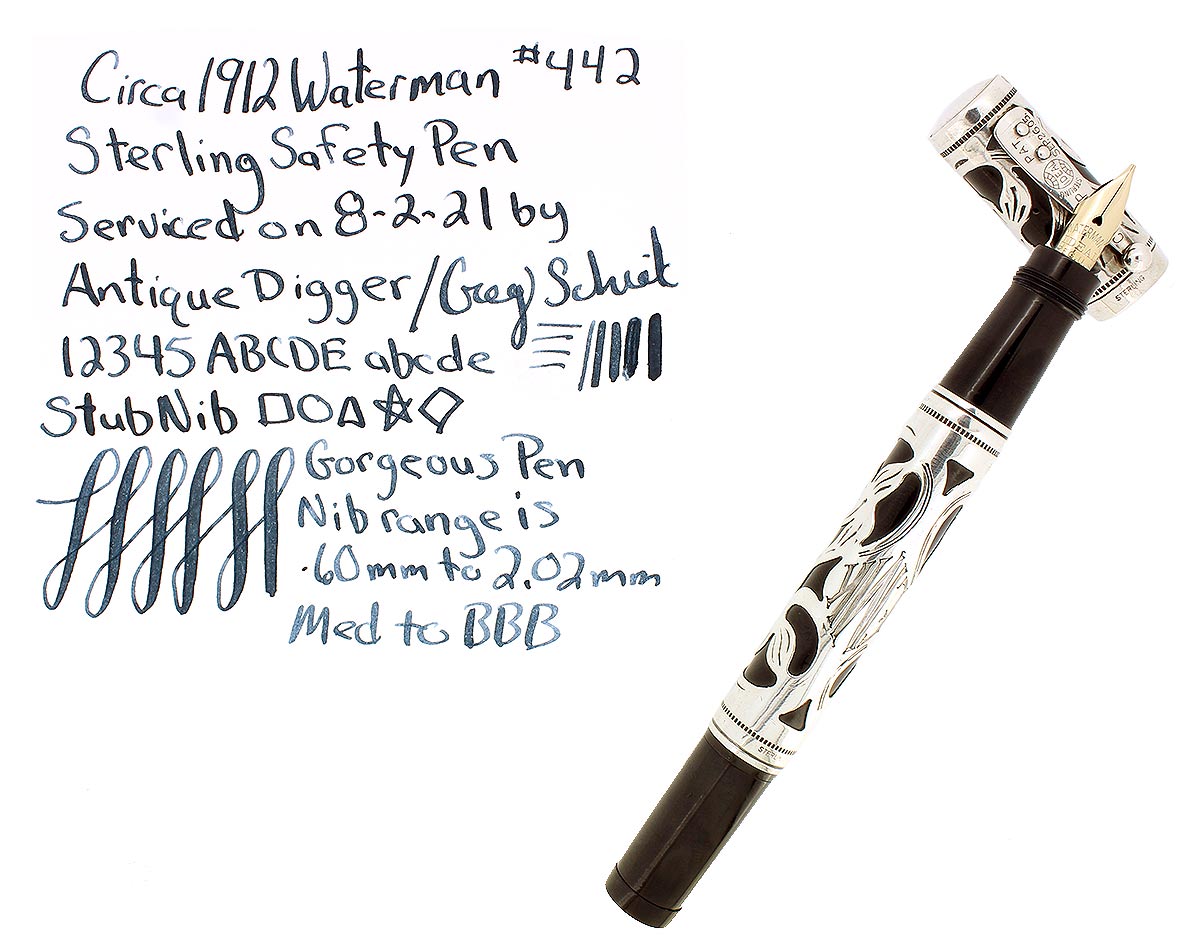 Circa 1912 Waterman #442
Sterling Safety Pen
Serviced on 8-2-21 by
Antique Digger/Greg
12345 ABCDE abcde
Stub Nib
Gorgeous Pen
Nib range is
.60mm to 2.02mm
Med to BBB
PAT
IDEAL
STERLING
IDEAL
STERLING